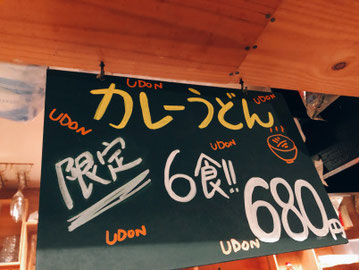 UDON
カレーうどん
UDON
UDON
UDON
限定
6食!!
680円
UDON
UDON